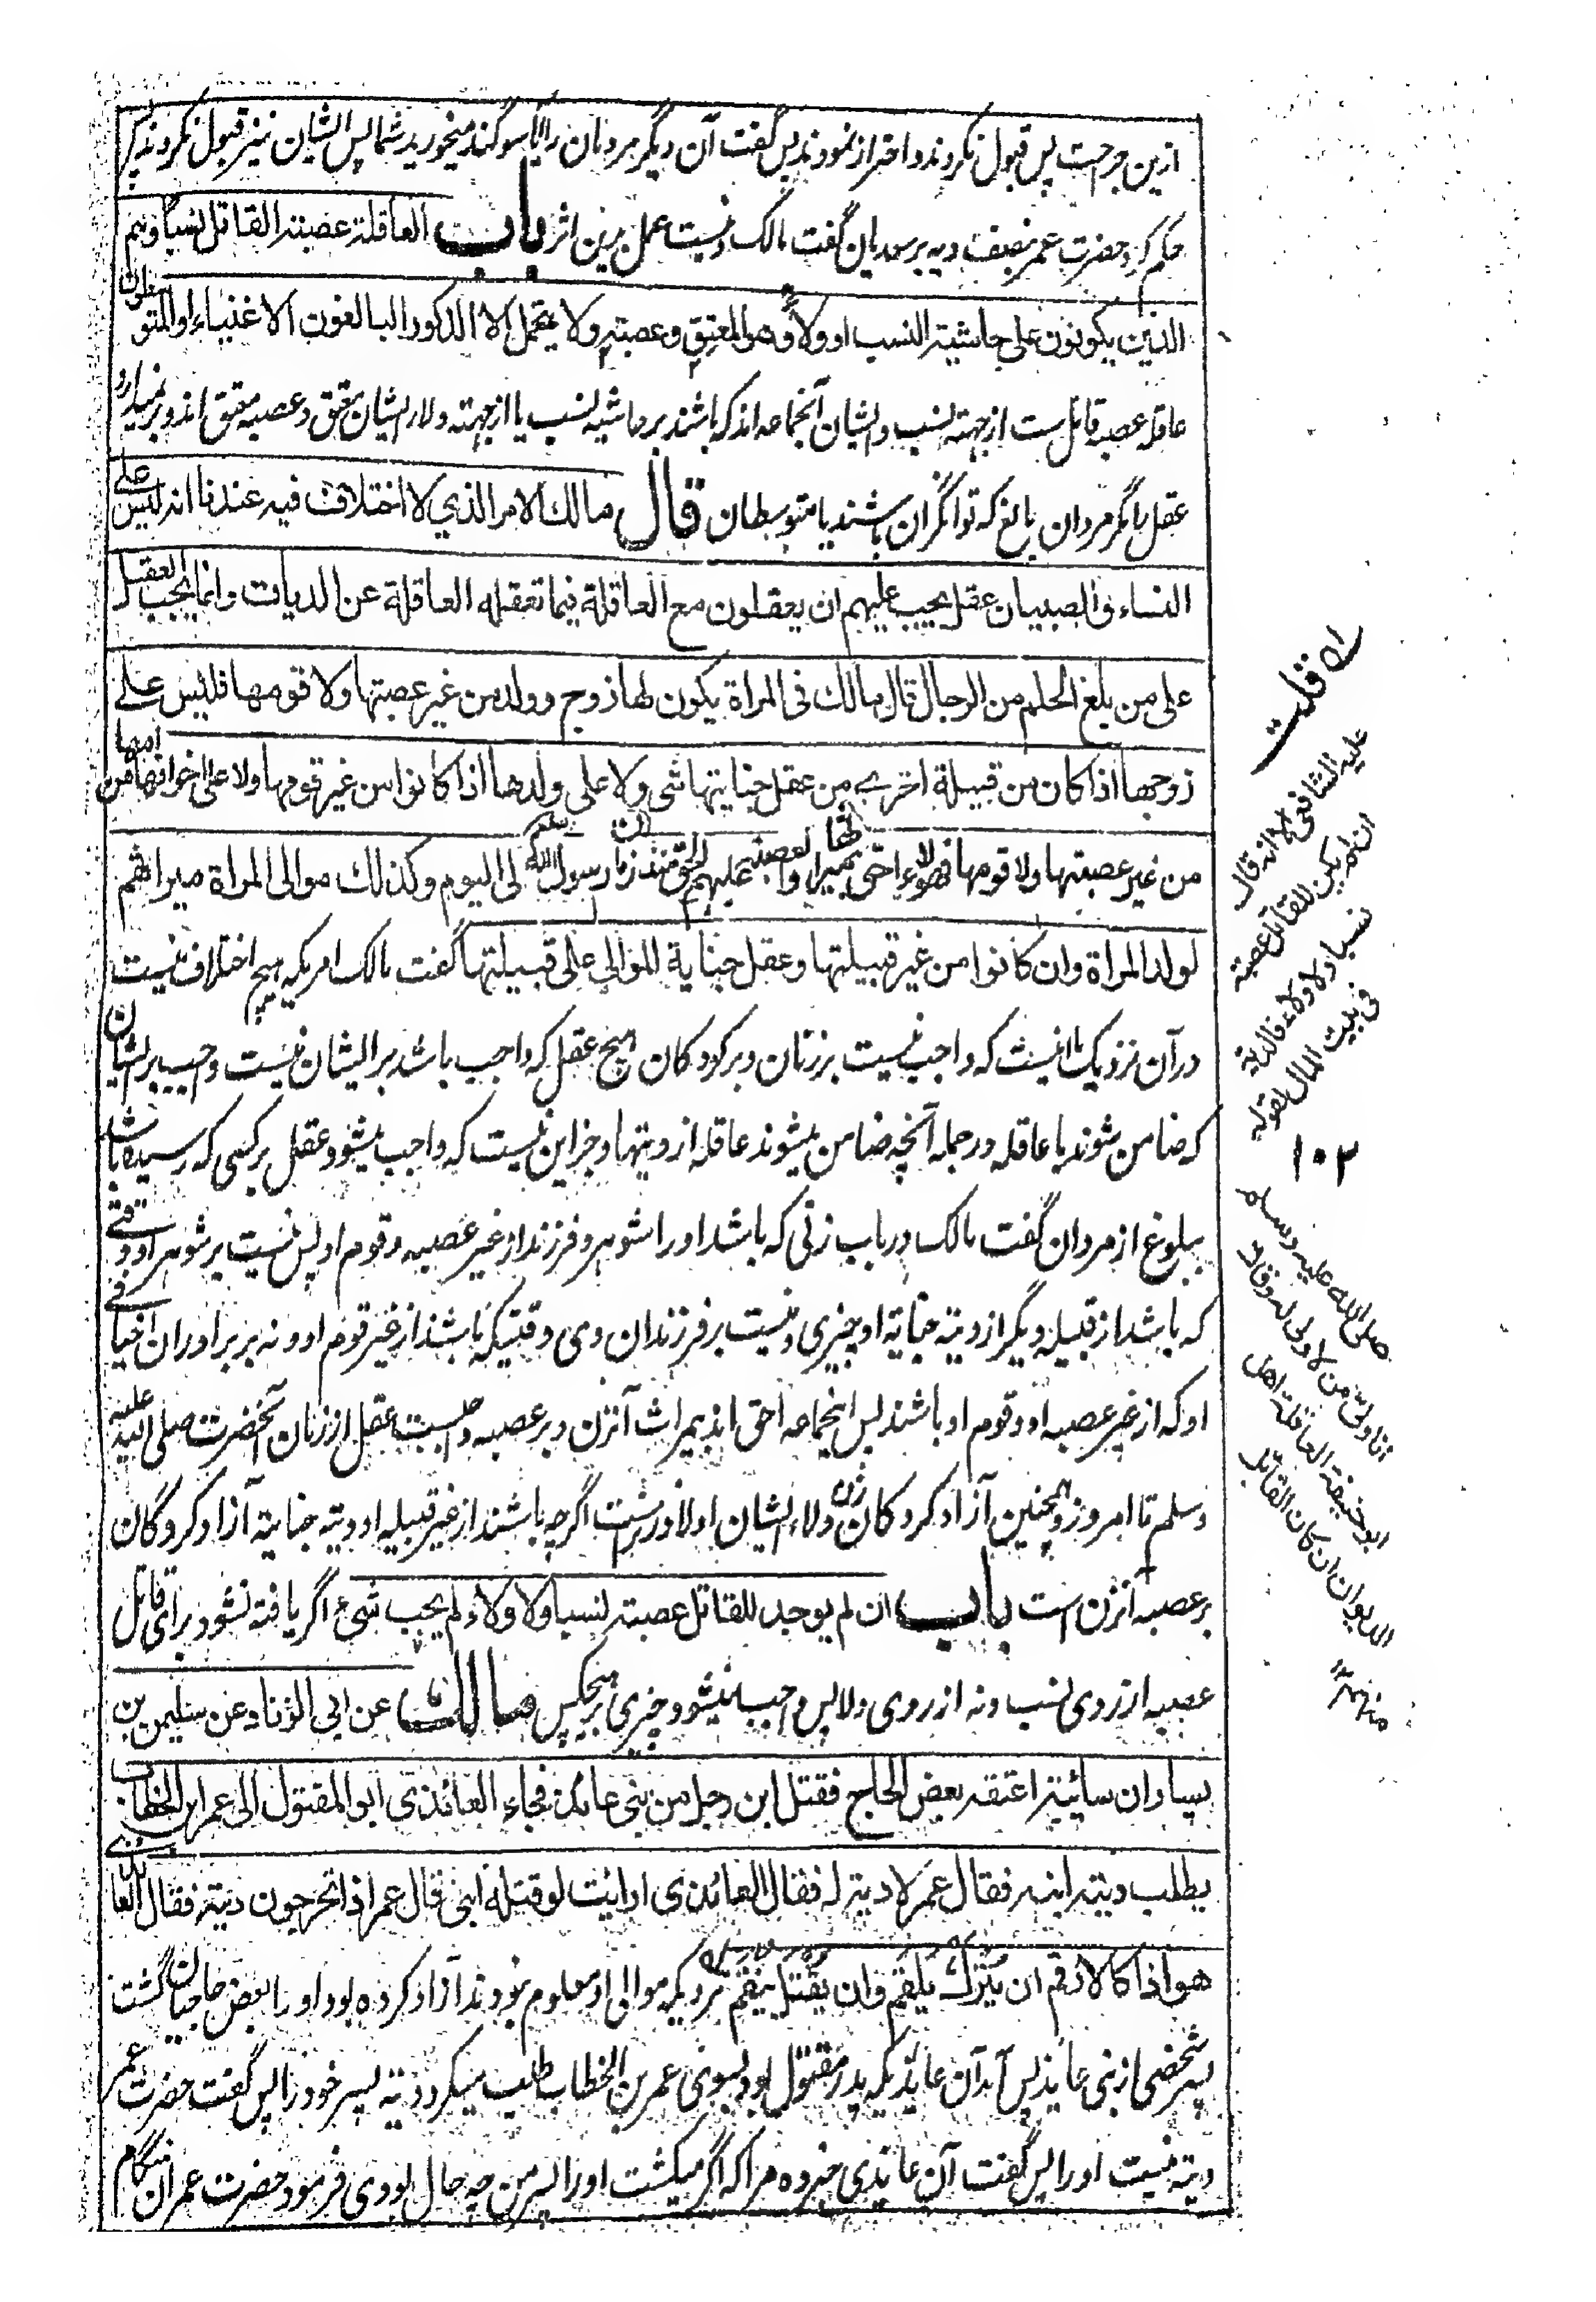 ازین جراحت پس قبول نکردند و احتراز نمودند پس گفت آن دیگر مردمان را آیا سوگند میخورید شما پس ایشان نیز قبول نکردند پس
حکم کرد حضرت عمر بنصف دیه بر سعدیان گفت مالک و نیست عمل برین اثر باب العاقلة عصبة القاتل نسبا وهم
الذین یکونون علی حاشیة النسب او ولاء وهو المعتق وعصبته ولا یتحمل الا الذکور البالغون الاغنیاء او المتوسطون
عاقله عصبه قاتل ست از جهته نسب و ایشان آنجماعه اند که باشند بر حاشیه نسب یا از جهته ولا و ایشان معتق و عصبه معتق اند و بر نمیدارد
عقل را مگر مردان بالغ که توانگران باشند یا متوسطان قال مالك الامر الذي لا اختلاف فیه عندنا انه لیس علی
النساء والصبیان عقل یجب علیهم ان یعقلون مع العاقلة فیما تعقله العاقلة عن الدیات وانما یجب العقل
علی من بلغ الحلم من الرجال قال مالك فی المراة یکون لها زوج وولد من غیر عصبتها ولا قومها فلیس علی
زوجها اذا کان من قبیلة اخری من عقل جنایتها شی ولا علی ولدها اذا کانوا من غیر قومها ولا علی اخوانها من امها
من غیر عصبتها ولا قومها فهولاء احق بمیراثها والعصبة علیهم العقل منذ زمان رسول الله صلعم الی الیوم وکذلك موالی المراة میراثهم
لولد المراة وان کانوا من غیر قبیلتها وعقل جنایة الموالی علی قبیلتها گفت مالک امریکه هیچ اختلاف نیست
در آن نزدیک ما اینست که واجب نیست بر زنان و بر کودکان هیچ عقل که واجب باشد بر ایشان نیست واجب بر ایشان
که ضامن شوند با عاقله در جمله آنچه ضامن میشوند عاقله از دیتها و جز این نیست که واجب میشود عقل بر کسی که رسیده باشد
ببلوغ از مردان گفت مالک در باب زنی که باشد او را شوهر و فرزند از غیر عصبه و قوم او پس نیست بر شوهر او وقتی
که باشد از قبیله دیگر از دیته جنایة او چیزی و نیست بر فرزندان وی وقتیکه باشند از غیر قوم او و نه بر برادران اخیافی
او که از غیر عصبه او و قوم او باشند پس اینجماعه احق اند بمیراث آنزن و بر عصبه واجبست عقل از زمان آنحضرت صلی الله علیه
وسلم تا امروز و همچنین آزاد کردگان زن ولاء ایشان اولاد زنست اگرچه باشند از غیر قبیله او و دیته جنایته آزاد کردگان
بر عصبه آنزن است باب ان لم یوجد للقاتل عصبة نسبا ولا ولاء لم یجب شیء اگر یافته نشود برای قاتل
عصبه از روی نسب و نه از روی ولا پس واجب نمیشود چیزی بر هیچکس مالك عن ابی الزناد عن سلیمن بن
یسار ان سائبة اعتقه بعض الحاج فقتل ابن رجل من بنی عائذ فجاء العائذی ابو المقتول الی عمر بن الخطاب
یطلب دیة ابنه فقال عمر لا دیة له فقال العائذی ارایت لو قتله ابنی قال عمر اذا تخرجون دیته فقال العائذی
هو اذا کالارقم ان یترك یلقم وان یقتل ینقم مردیکه موالی او معلوم نبودند آزاد کرده بود او را بعض حاجیان گشت
پسر شخصی از بنی عایذ پس آمد آن عایذیکه پدر مقتول بود بسوی عمر بن الخطاب طلب میکرد دیته پسر خود را پس گفت حضرت عمر
دیته نیست او را پس گفت آن عایذی خبر ده مرا که اگر میکشت او را پسر من چه حال بودی فرمود حضرت عمر آن هنگام
قلت
علیه الشافعی الا انه قال
ان لم یکن للقاتل عصبة
نسبا ولا ولاء فالدیة
فی بیت المال لقوله
۱۰۲
صلی الله علیه وسلم
انا ولی من لا ولی له وقال
ابو حنیفة العاقلة اهل
الدیوان ان کان القاتل